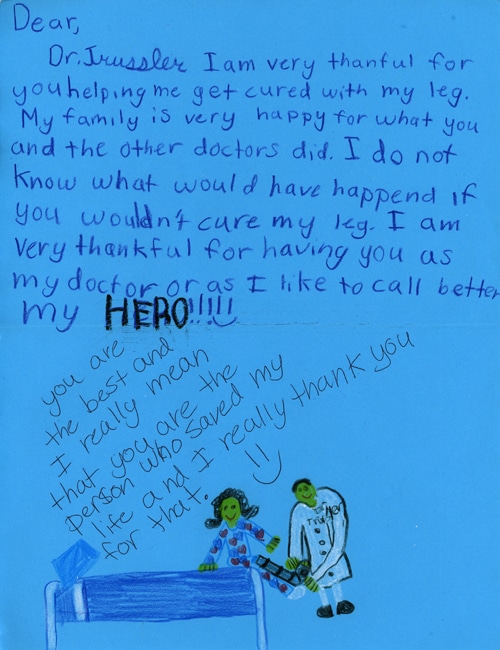 Dear,
Dr. Trussler I am very thanful for
you helping me get cured with my leg.
My family is very happy for what you
and the other doctors did. I do not
know what would have happend if
you wouldn't cure my leg. I am
very thankful for having you as
my doctor or as I like to call better
my HERO!!!!!
you are
the best and
I really mean
that you are the
person who saved my
life and I really thank you
for that.
Dr.
Trussler